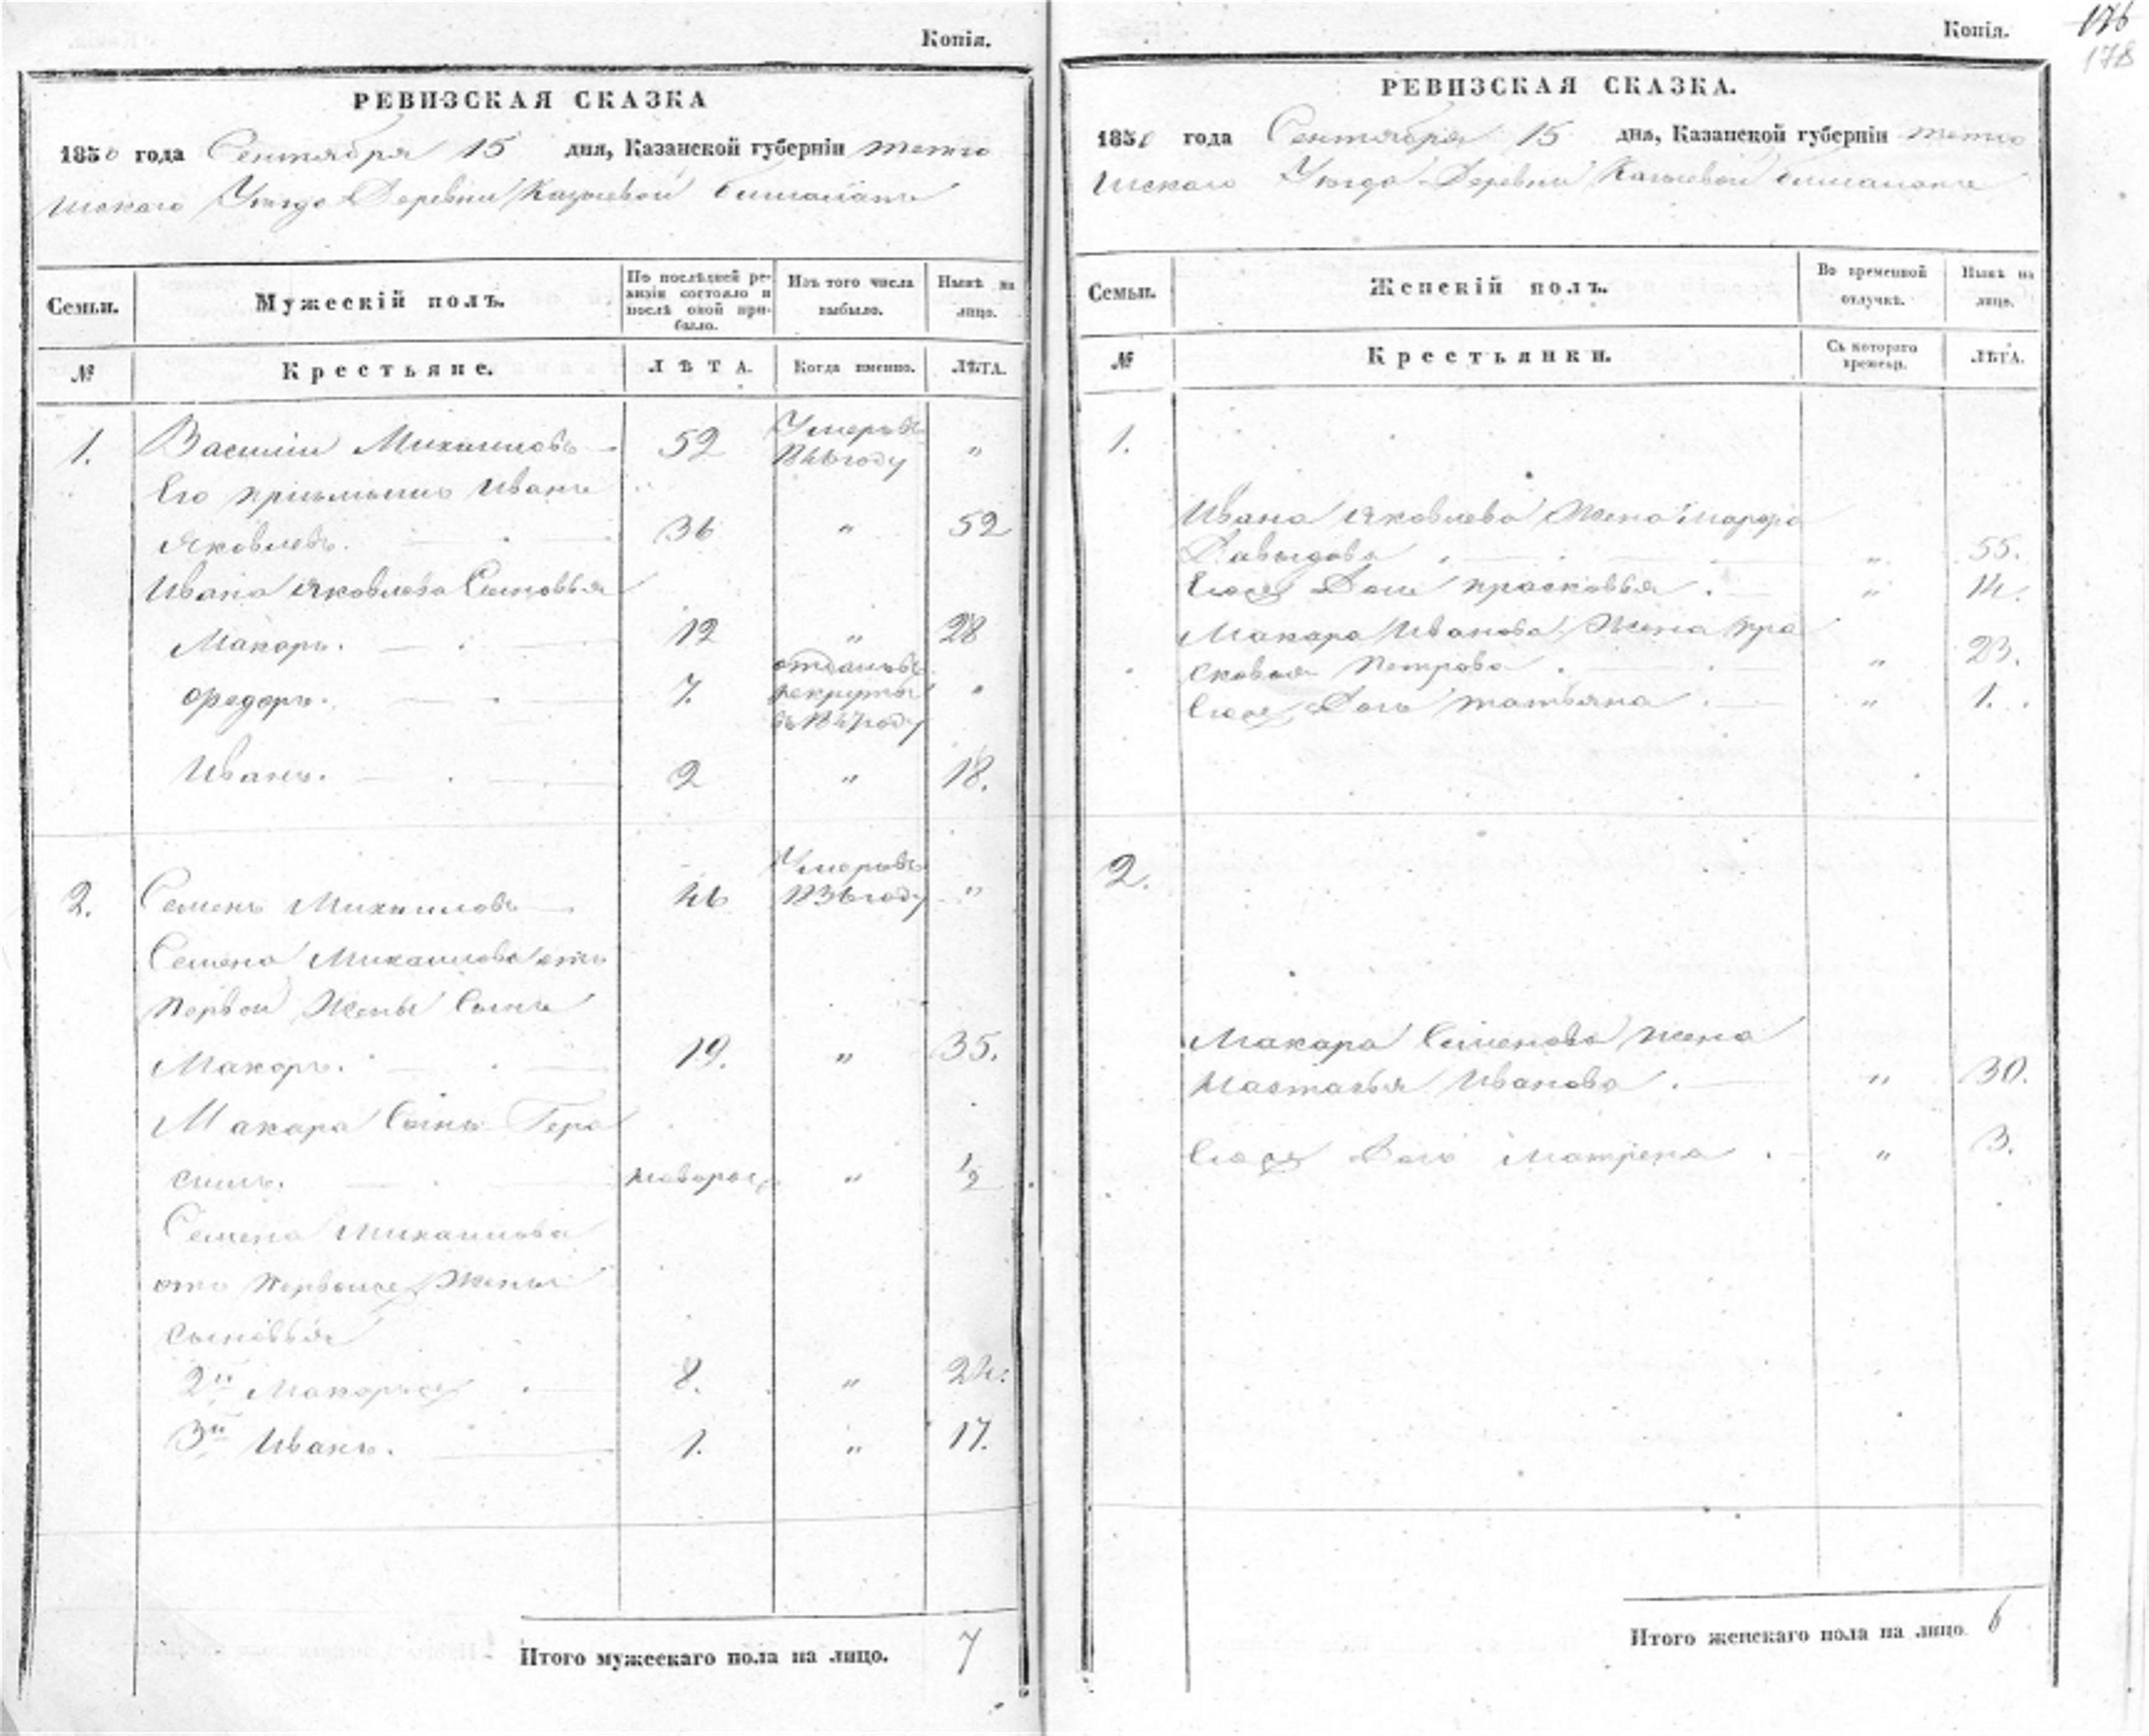 Копія.
РЕВИЗСКАЯ СКАЗКА
1850 года Сентября 15 дня, Казанской губерніи тетю
шскаго Уезда Деревни
Семьи.
Мужескій полъ.
По послѣдней ревизіи состояло и послѣ оной прибыло.
Изъ того числа выбыло.
Нынѣ на лицо.
№
Крестьяне.
ЛѢТА.
Когда именно.
ЛѢТА.
1. Василіи Михаиловъ 52 Умеръ въ 1846 году "
Его пріемышъ Иванъ
Яковлевъ. 36 " 52
Ивана Яковлева Сыновья
Макаръ. 12 " 28
Федоръ. 7. отданъ въ рекруты въ 1847 году "
Иванъ. 2 " 18.
2. Семенъ Михаиловъ 46 Умеръ въ 1836 году "
Семена Михаилова отъ
первой Жены Сынъ
Макаръ. 19. " 35.
Макара Сынъ Гера
симъ. новорож " 1/2
Семена Михаилова
отъ Жены
сыновья
2й 8. " 24.
3й Иванъ. 1. " 17.
Итого мужескаго пола на лицо. 7
Копія.
176
178
РЕВИЗСКАЯ СКАЗКА.
1850 года Сентября 15 дня, Казанской губерніи тетю
шскаго Уезда Деревни
Семьи.
Женскій полъ.
Во временной отлучкѣ.
Нынѣ на лицо.
№
Крестьянки.
Съ котораго времени.
ЛѢТА.
1.
Ивана Яковлева Жена Марфа
Давыдова " 55.
Ево Дочь прасковья . " 14.
Макара Иванова Жена пра
сковья Петрова . " 23.
Дочь татьяна . " 1.
2.
Макара Семенова жена
Настасья Иванова . " 30.
Дочь Матрена . " 3.
Итого женскаго пола на лицо 6